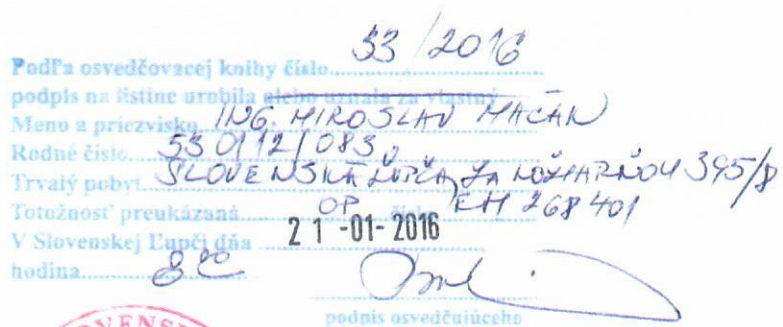 Podľa osvedčovacej knihy číslo 53/2016
podpis na listine urobila alebo uznala za vlastný
Meno a priezvisko ING MIROSLAV MAČAN
Rodné číslo 530112/083
Trvalý pobyt SLOVENSKÁ ĽUPČA, ZA 395/8
Totožnosť preukázaná OP číslo EH 268401
V Slovenskej Ľupči dňa 21-01-2016
hodina 8⁰⁰
podpis osvedčujúceho